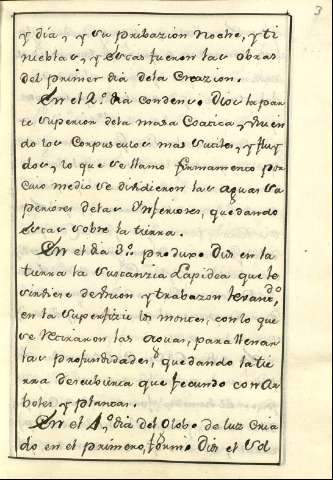 3
y dia, y su pribazion Noche, y ti
nieblas, y estas fueron las obras
del primer dia dela Creazion.
En el 2.º dia condensò Dios la par
te superior dela masa Coatica, y
do los Corpusculos mas sutiles, y fluy
dos, lo que se llamo firmamento por
cuio medio se dividieron las aguas su
periores delas Ynferiores, quedando
estas sobre la tierra.
En el dia 3.º produxo Dios en la
tierra la sustanzia Lapidea que le
sirviere de Union y trabazon levand.do
en la superfizie los montes, con lo que
se retiraron las aguas, para llenar
las profundidades, quedando la tie
rra descubierta que fecundo con Ar
boles, y plantas.
En el 4.º dia del Globo de luz Cria
do en el primero, formò Dios el Sol